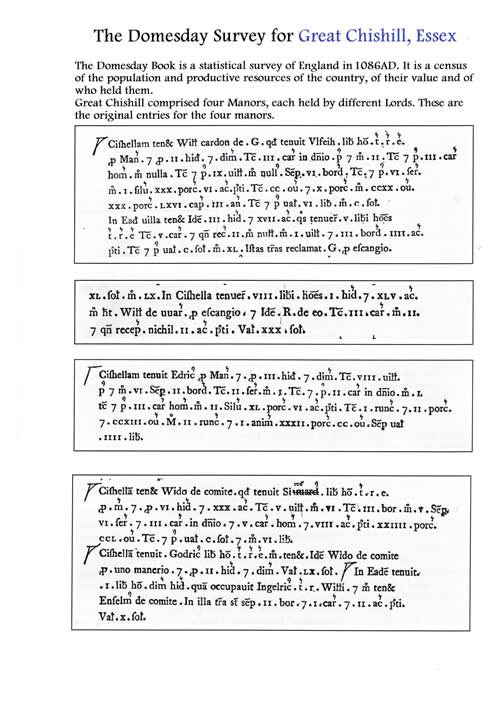 The Domesday Survey for Great Chishill, Essex
The Domesday Book is a statistical survey of England in 1086AD. It is a census
of the population and productive resources of the country, of their value and of
who held them.
Great Chishill comprised four Manors, each held by different Lords. These are
the original entries for the four manors.
Cishellam ten& Witt cardon de . G . qd tenuit Vlfeih . lib hō . t . r . e .
ꝓ Man . 7 . ꝓ . II . hid . 7 . dim . Tc̄ . III . car in dñio . p̊ 7 m̊ . II . Tc̄ 7 p̊ . III . car
hom . m̊ nulla . Tc̄ 7 p̊ . IX . uitt . m̊ null . Sēp . VI . bord . Tc̄ . 7 p̊ . VI . ser .
m̊ . I . silu . XXX . porc . VI . ac . p̃ti . Tc̄ . CC . oū . 7 . X . porc . m̊ . CCXX . oū .
XXX . porc . LXVI . cap . III . an . Tc̄ 7 p̊ uat . VI . lib . m̊ . C . sot .
In Ead uilla ten& Idē . III . hid . 7 XVII . ac . qs tenuer . V . libi hōes
t . r . e Tc̄ . V . car . 7 qñ rec . II . m̊ nutt . m̊ . I . uitt . 7 . III . bord . IIII . ac .
p̃ti . Tc̄ 7 p̊ uat . C . sot . m̊ . XL . Istas tras reclamat . G . ꝓ escangio .
XL . sot . m̊ . LX . In Cishella tenuer . VIII . libi . hōes . I . hid . 7 . XLV . ac .
m̊ ht . Witt de uuar , ꝓ escangio . 7 Idē . R . de eo . Tc̄ . III . car . m̊ . II .
7 qñ recep . nichil . II . ac . p̃ti . Vat . XXX . sot .
Cishellam tenuit Edric ꝓ Man . 7 . ꝓ . III . hid . 7 . dim . Tc̄ . VIII . uitt .
p̊ 7 m̊ . VI . Sēp . II . bord . Tc̄ . II . ser . m̊ . I . Tc̄ . 7 . p̊ . II . car in dñio . m̊ . I .
tc̄ 7 p̊ . III . car hom . m̊ . II . Silu . XL . porc . VI . ac . p̃ti . Tc̄ . I . runc . 7 . II . porc .
7 . CCXIII . oū . M̊ . II . runc . 7 . I . anim . XXXII . porc . CC . oū . Sēp uat
. IIII . lib .
Cishellā ten& Wido de comite . qd tenuit . lib hō . t . r . e .
ꝓ . m̊ . 7 . ꝓ . VI . hid . 7 . XXX . ac . Tc̄ . V . uitt . m̊ . VI . Tc̄ . III . bor . m̊ . V . Sēp .
VI . ser . 7 . III . car . in dñio . 7 . V . car . hom . 7 . VIII . ac . p̃ti . XXIIII . porc .
CCL . oū . Tc̄ . 7 p̊ . uat . C . sot . 7 . m̊ . VI . lib .
Cishellā tenuit . Godric lib hō . t . r . e . m̊ . ten& . Idē Wido de comite
ꝓ . uno manerio . 7 . ꝓ . II . hid . 7 . dim . Vat . LX . sot . In Eadē tenuit .
. I . lib hō . dim hid . quā occupauit Ingelric . t . r . Witti . 7 m̊ ten&
Enselm de comite . In illa tra st sēp . II . bor . 7 . I . car . 7 . II . ac . p̃ti .
Vat . X . sot .